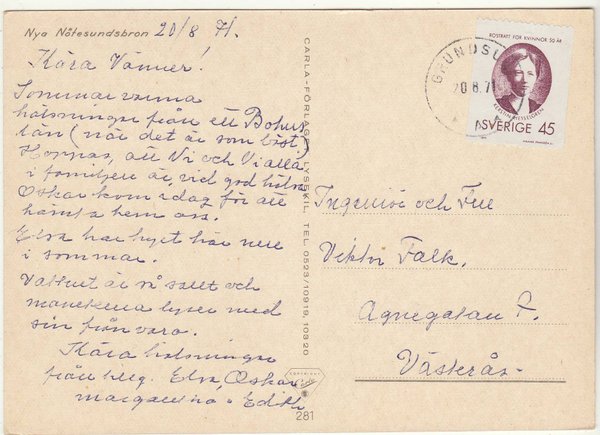 Nya Nötesundsbron 20/8 71.
Kära Vänner!
Sommarvarma
hälsningar från ett Bohus
län (när det är som bäst)
Hoppas, att Ni och Ni alla
i familjen är vid god hälsa
Oskar kom idag för att
hämta hem oss.
Elsa har hyrt här nere
i sommar.
Vattnet är så salt och
maneterna lyser med
sin från varo.
Kära hälsningar
från Elsa, Oskar
Margareta o Edith
CARLA-FÖRLAGET, LYSEKIL, TEL. 0523/10919, 10320
COPYRIGHT
281
RÖSTRÄTT FÖR KVINNOR 50 ÅR
KERSTIN HESSELGREN
SVERIGE 45
GRUNDSU
20.8.71
Ingeniör och Fru
Viktor Falk.
Agnegatan
Västerås.